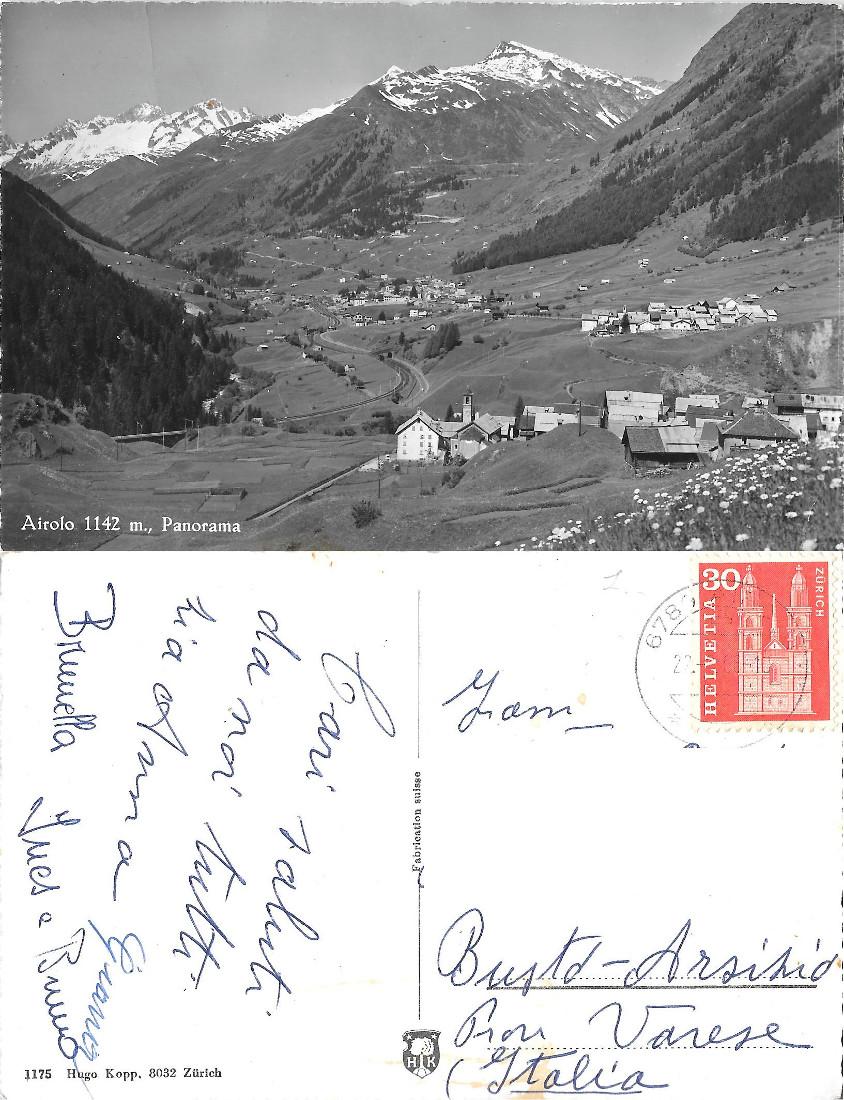 Airolo 1142 m., Panorama
Cari saluti
da noi tutti
zia Anna
Brunella
Ines e Bruno
Fabrication suisse
Fam
30
HELVETIA
ZÜRICH
678
Busto-Arsizio
Prov Varese
(Italia
HK
1175 Hugo Kopp, 8032 Zürich